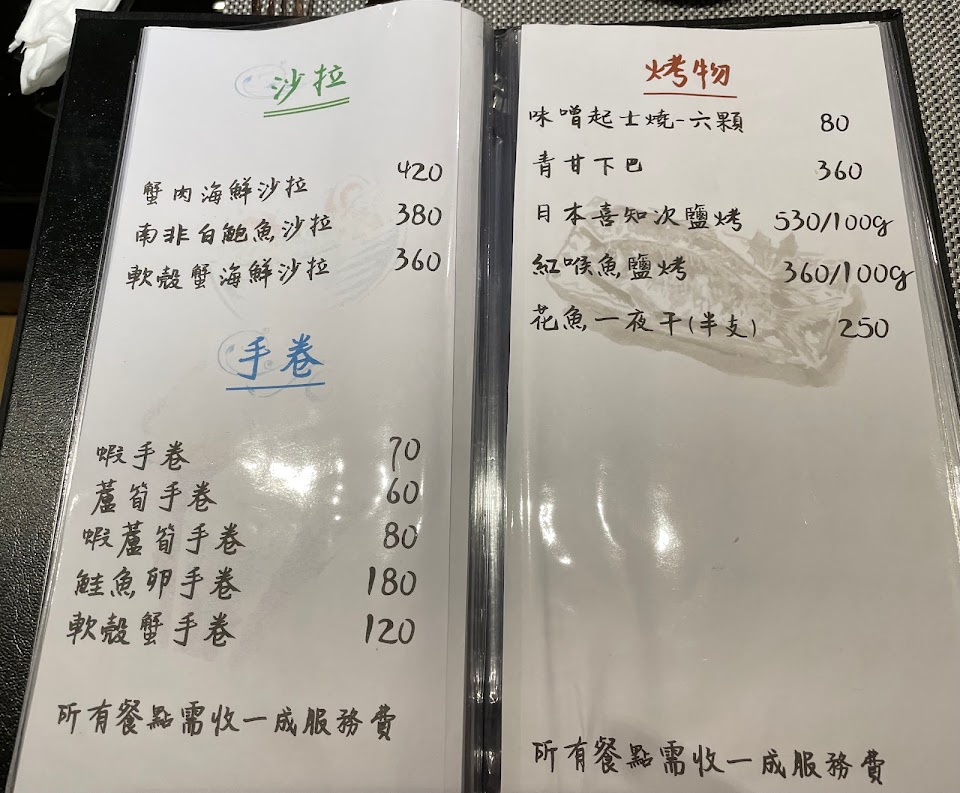 沙拉
蟹肉海鮮沙拉 420
南非白鮑魚沙拉 380
軟殼蟹海鮮沙拉 360
手卷
蝦手卷 70
蘆筍手卷 60
蝦蘆筍手卷 80
鮭魚卵手卷 180
軟殼蟹手卷 120
所有餐點需收一成服務費
烤物
味噌起士燒-六顆 80
青甘下巴 360
日本喜知次鹽烤 530/100g
紅喉魚鹽烤 360/100g
花魚一夜干(半支) 250
所有餐點需收一成服務費